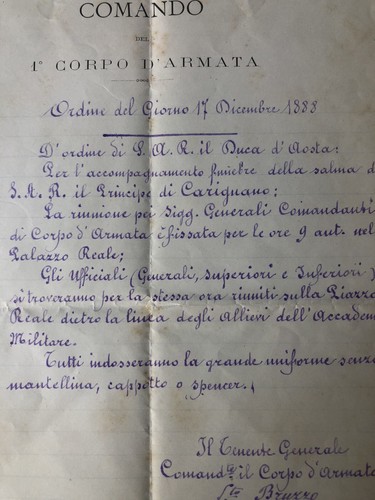 COMANDO
DEL
1° CORPO D'ARMATA
Ordine del Giorno 17 Dicembre 1888
D'ordine di S. A. R. il Duca d'Aosta:
Per l'accompagnamento funebre della salma di
S. A. R. il Principe di Carignano:
La riunione pei Sigg. Generali Comandanti
di Corpo d'Armata è fissata per le ore 9 ant. nel
Palazzo Reale;
Gli Ufficiali (Generali, Superiori e Inferiori)
si troveranno per la stessa ora riuniti sulla Piazza
Reale dietro la linea degli Allievi dell'Accadem
Militare.
Tutti indosseranno la grande uniforme senza
mantellina, cappotto o spencer.
Il Tenente Generale
Comandte il Corpo d'Armata
Fto Bruzzo